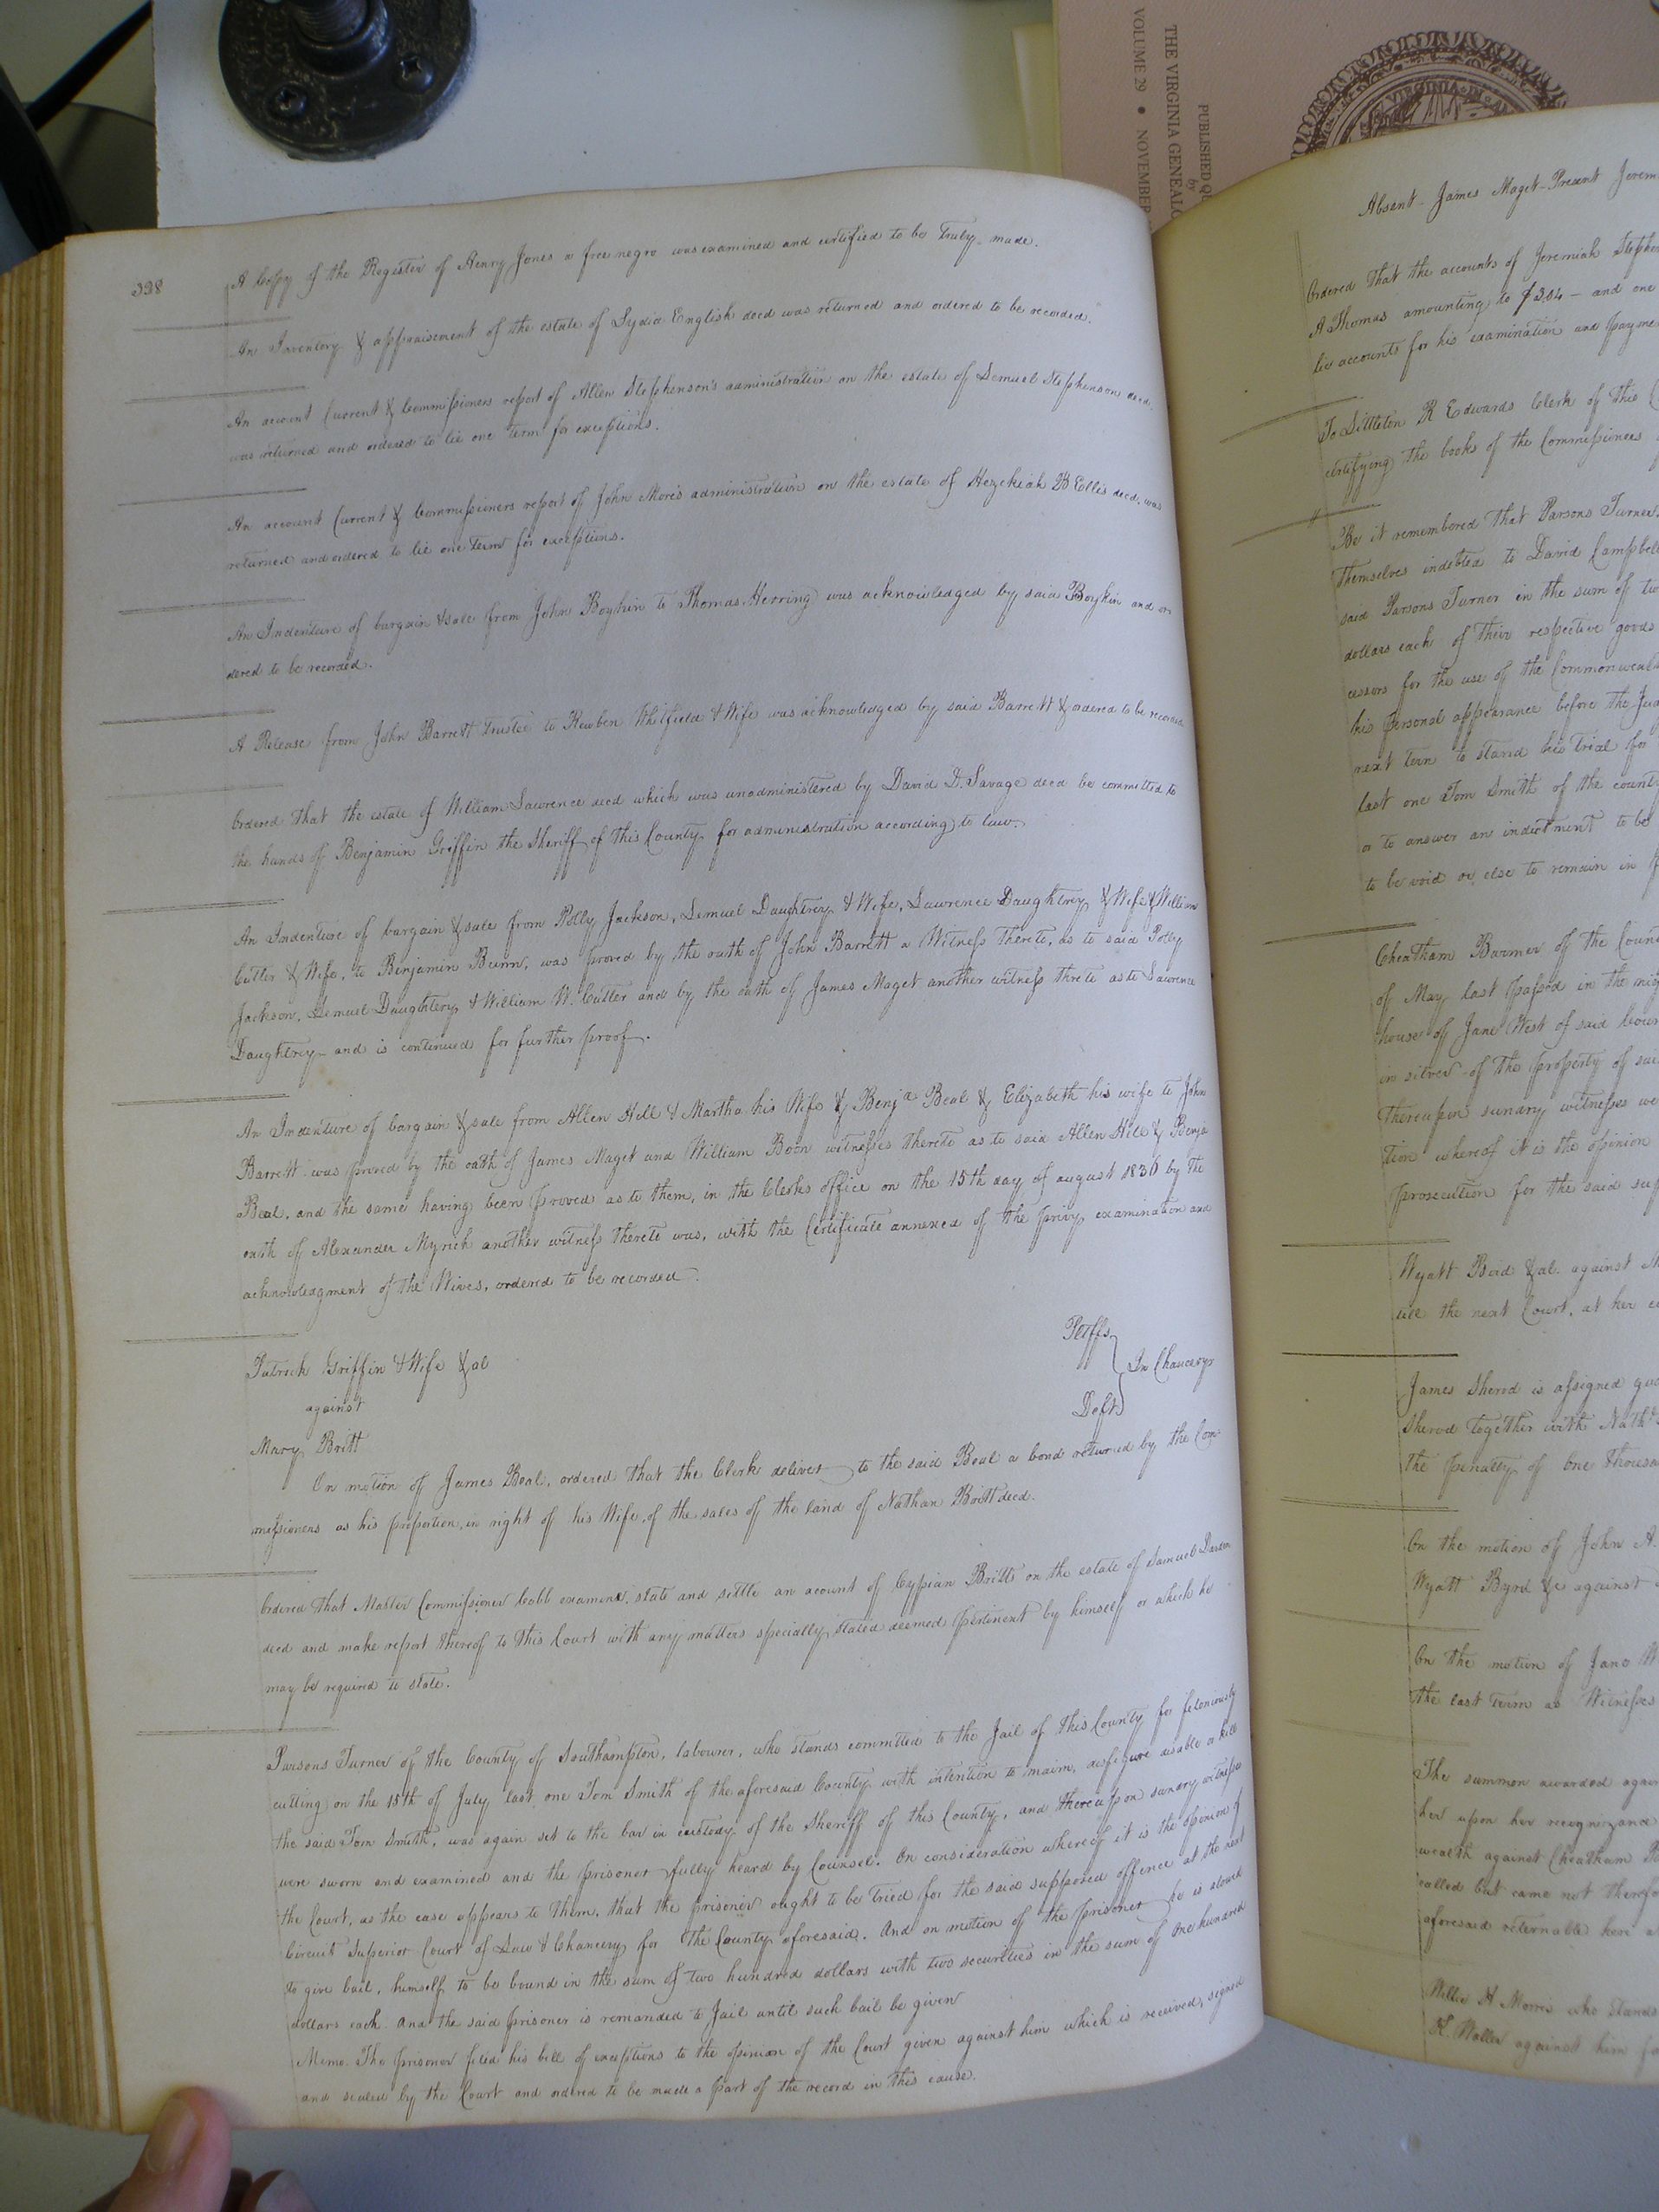 328
A Copy of the Register of Henry Jones a free negro was examined and certified to be truly made.
An Inventory & appraisement of the estate of Lydia English decd was returned and ordered to be recorded.
An account Current & Commissioners report of Allen Stephenson's administration on the estate of Lemuel Stephenson decd.
was returned and ordered to lie one term for exceptions.
An account Current & Commissioners report of John Mores administration on the estate of Hezekiah B Ellis decd, was
returned and ordered to lie one term for exceptions.
An Indenture of bargain & sale from John Boykin to Thomas Herring was acknowledged by said Boykin and or
dered to be recorded.
A Release from John Barrett Trustee to Reuben Whitfield & Wife was acknowledged by said Barrett & ordered to be recorded
Ordered that the estate of William Lawrence decd which was unadministered by David D. Savage decd be committed to
the hands of Benjamin Griffin the Sheriff of this County for administration according to law.
An Indenture of bargain & sale from Polly Jackson, Lemuel Daughtrey & Wife, Lawrence Daughtrey & Wife & William
Cutler & Wife, to Benjamin Bunn, was proved by the oath of John Barrett a Witness thereto, as to said Polly
Jackson, Lemuel Daughtery & William W. Cutler and by the oath of James Maget another witness threto as to Lawrence
Daughtrey and is continued for further proof.
An Indenture of bargain & sale from Allen Hill & Martha his Wife & Benja Beal & Elizabeth his wife to John
Barrett was proved by the oath of James Maget and William Boon witnesses thereto as to said Allen Hill & Benja
Beal, and the same having been proved as to them, in the Clerks office on the 15th day of august 1831 by the
oath of Alexander Myrick another witness thereto was, with the Certificate annexed of the privy examination and
acknowledgment of the Wives, ordered to be recorded.
Patrick Griffin & Wife & al Pltffs
against In Chancery
Mary Britt Defts
On motion of James Beal, ordered that the Clerk deliver to the said Beal a bond returned by the Com
missioners as his proportion, in right of his Wife, of the sales of the land of Nathan Britt decd.
Ordered that Master Commissioner Cobb examine, state and settle an acount of Cyprian Britts on the estate of Samuel
decd and make report thereof to this Court with any matters specially stated deemed pertinent by himself or which he
may be required to state.
Parsons Turner of the County of Southampton, labourer, who stands committed to the Jail of this County for feloniously
cutting on the 15th of July last one Tom Smith of the aforesaid County with intention to maim, disfigure disable & kill
the said Tom Smith, was again set to the bar in custody of the Sheriff of this County, and thereupon sundry witnesses
were sworn and examined and the prisoner fully heard by Counsel. On consideration whereof it is the opinion of
the Court, as the case appears to them, that the prisoner ought to be tried for the said supposed offence at the next
Circuit Superior Court of Law & Chancery for the County aforesaid. And on motion of the prisoner he is alowed
to give bail, himself to be bound in the sum of two hundred dollars with two securities in the sum of one hundred
dollars each. And the said prisoner is remanded to Jail until such bail be given
Memo. The prisoner filed his bill of exceptions to the opinion of the Court given against him which is received, signed
and sealed by the Court and ordered to be made a part of the record in this cause.
Absent - James Maget - Present Jerem
Ordered That the accounts of Jeremiah Stephen
A Thomas amounting to $3.04 - and one
lic accounts for his examination and payme
To Littleton R Edwards Clerk of this
certifying the books of the Commissioners
Be it remembered That Parsons Turner
themselves indebted to David Campbell
said Parsons Turner in the sum of two
dollars each of their respective goods
cessors for the use of the Commonweal
his personal appearance before the Jud
next term to stand his trial for
last one Tom Smith of the county
or to answer an indictment to be
to be void or else to remain in f
Cheatham Barmer of the Coun
of May last passed in the nig
house of Jane West of said Coun
in silver of the property of sai
thereupon sundry witnesses we
tion whereof it is the opinion
prosecution for the said sup
Wyatt Bird & al. against
till the next Court, at her
James Sherod is assigned gua
Sherod together with Nathl
the penalty of One Thousa
On the motion of John A.
Wyatt Byrd &c against
On the motion of Jane W
the last term as Witnesses
The summon awarded again
her upon her recognizance
wealth against Cheatham B
called but came not therefo
aforesaid returnable here a
Willie H Morris who stands
Waller against him fo
VOLUME 29 • NOVEMBER
THE VIRGINIA GENEALO
PUBLISHED QU
by
VIRGINIA